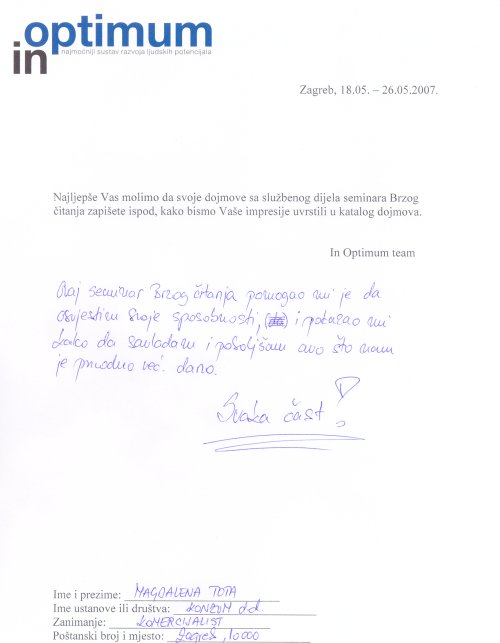 optimum
in
najmoćniji sustav razvoja ljudskih potencijala
Zagreb, 18.05. – 26.05.2007.
Najljepše Vas molimo da svoje dojmove sa službenog dijela seminara Brzog
čitanja zapišete ispod, kako bismo Vaše impresije uvrstili u katalog dojmova.
In Optimum team
Ovaj seminar Brzog čitanja pomogao mi je da
osvjestim svoje sposobnosti, i pokazao mi
kako da savladam i poboljšam ono što nam
je prirodno već dano.
Svaka čast!
Ime i prezime: MAGDALENA TOTA
Ime ustanove ili društva: KONZUM d.d.
Zanimanje: KOMERCIJALIST
Poštanski broj i mjesto: Zagreb, 10000